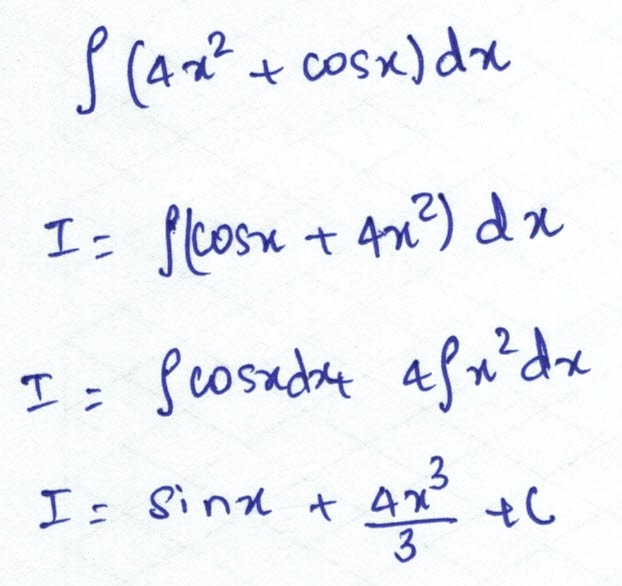 ∫(4x² + cosx)dx
I = ∫(cosx + 4x²) dx
I = ∫cosxdx + 4∫x²dx
I = sinx + 4x³/3 + C